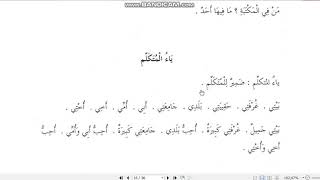 WWW.BANDICAM.COM
مَنْ فِي الْمَكْتَبَةِ ؟ مَا فِيهَا أَحَدٌ .
يَاءُ الْمُتَكَلِّمِ
ياءُ المتكلّمِ : ضَمِيرٌ لِلْمُتَكَلِّمِ
بَيْتِي ، غُرْفَتِي ، حَقِيبَتِي ، بَلَدِي ، جَامِعَتِي ، أَبِي ، أُمِّي ، أَخِي ، أُخْتِي .
بَيْتِي جَمِيلٌ . غُرْفَتِي كَبِيرَةٌ . أُحِبُّ بَلَدِي . جَامِعَتِي كَبِيرَةٌ . أُحِبُّ أَبِي وَأُمِّي . أُحِبُّ
أَخِي وَأُخْتِي .